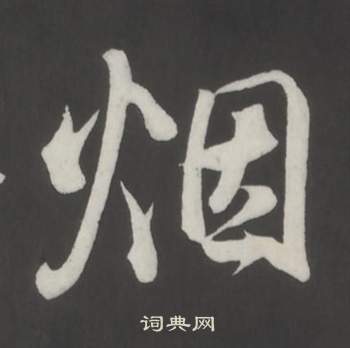 烟
词典网